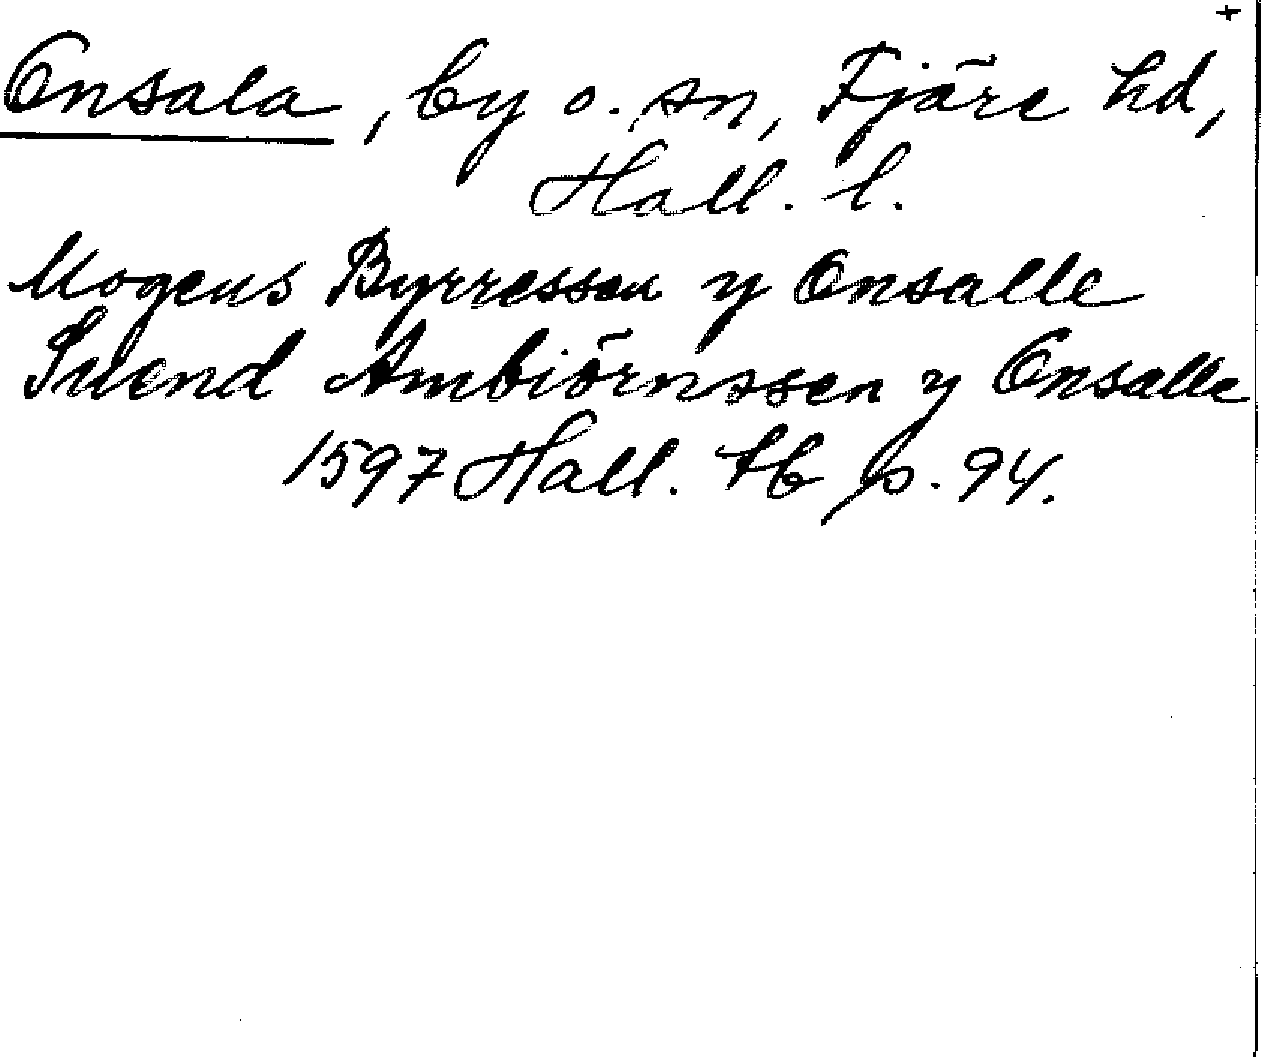 +
Onsala, by o. sn, Fjäre hd,
Hall. l.
Mogens Byrressen y Onsalle
Suend Ambiörnssen y Onsalle
1597 Hall. tb p. 94.